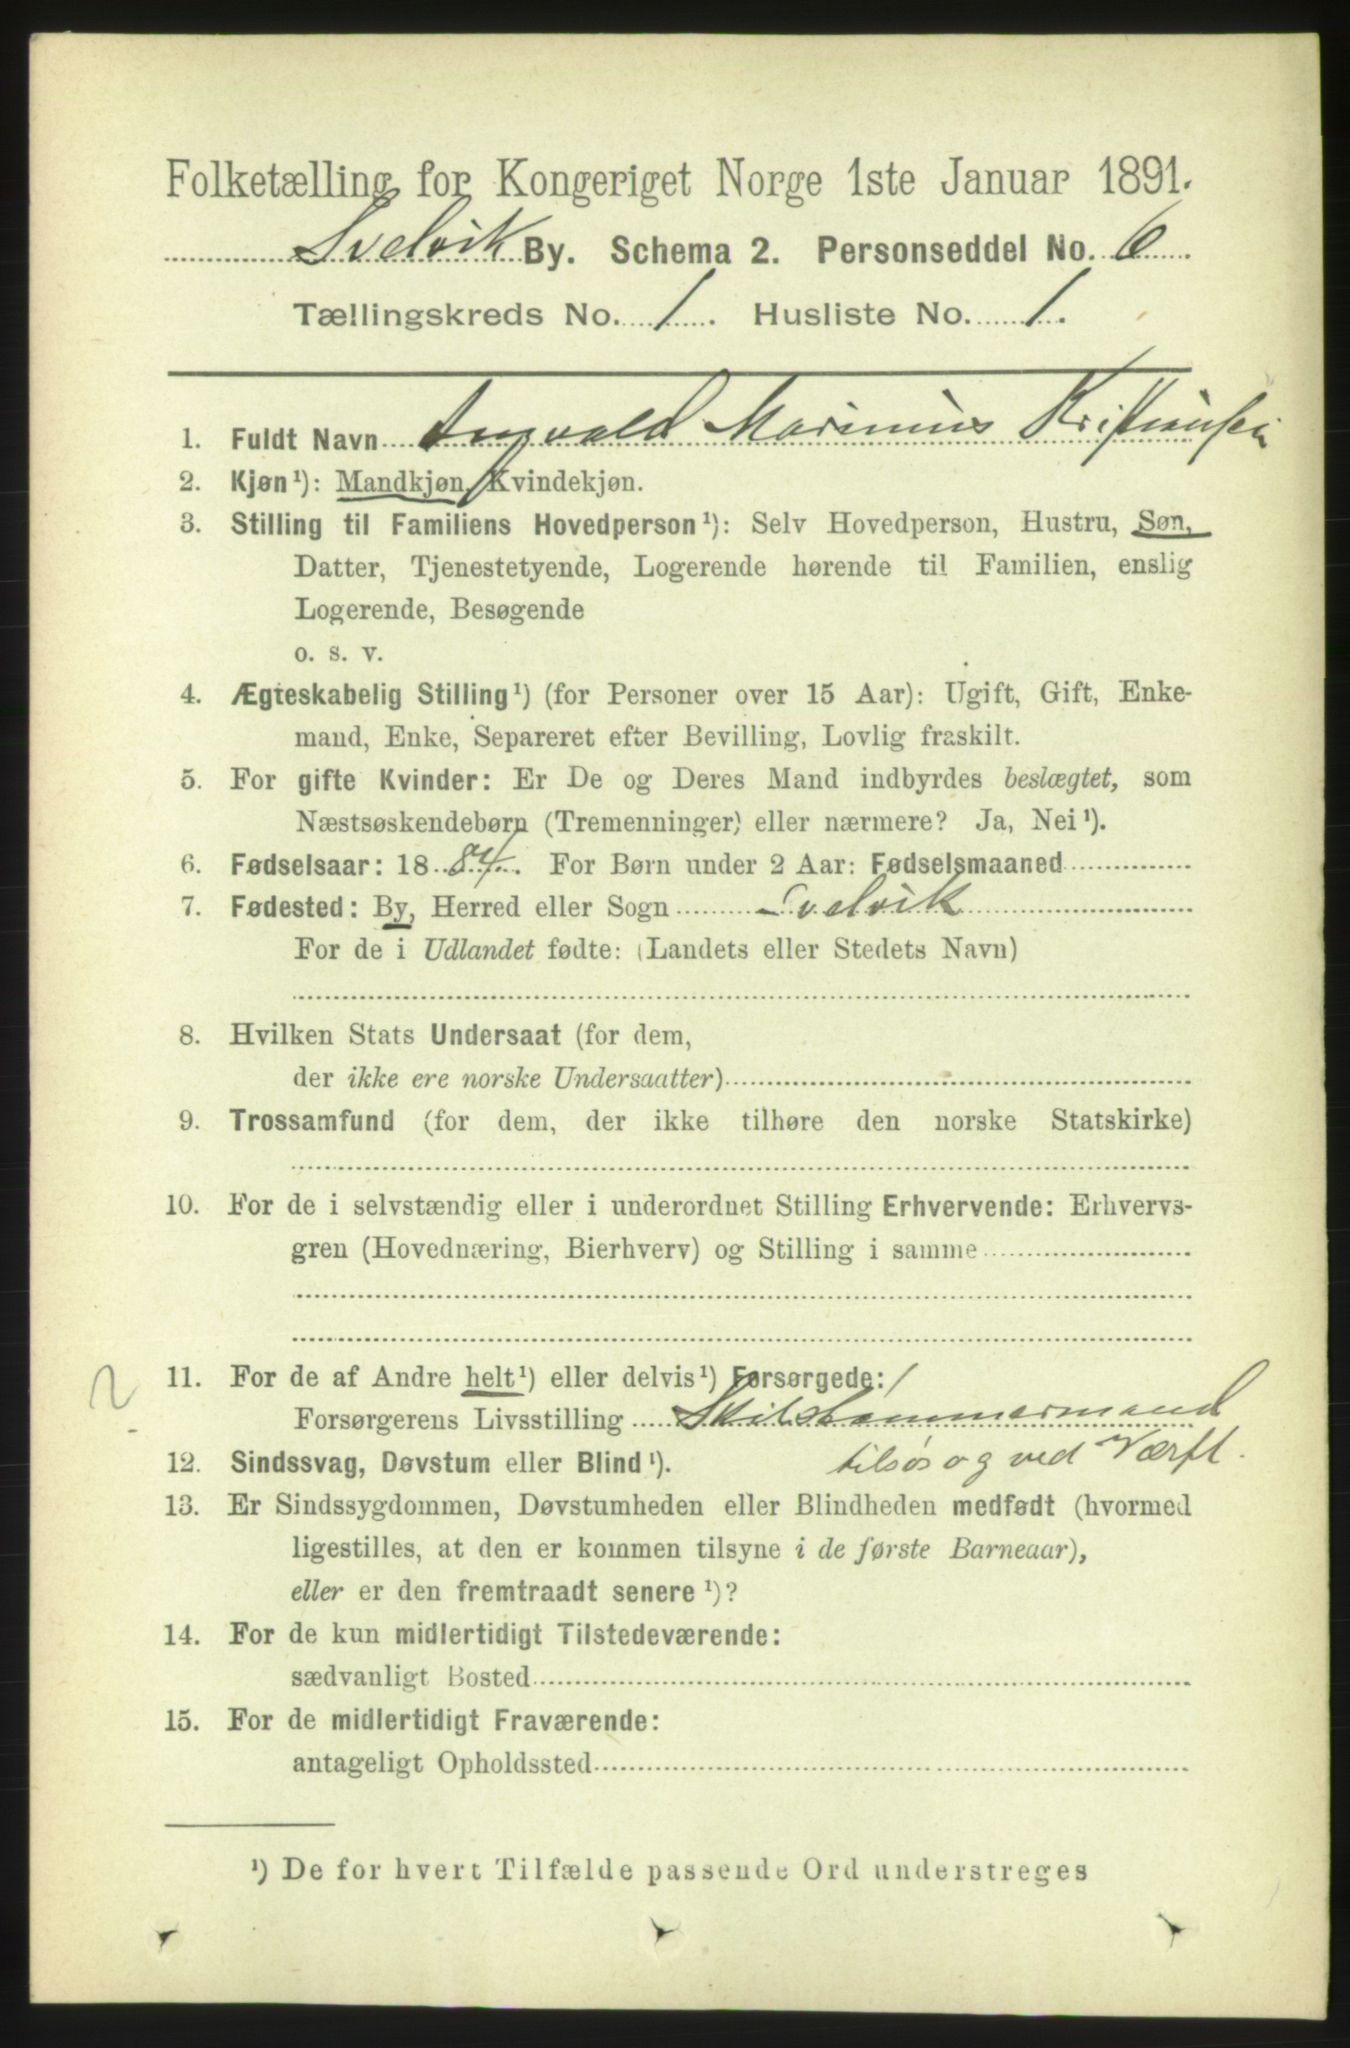 Folketælling for Kongeriget Norge 1ste Januar 1891.
Svelvik By. Schema 2. Personseddel No. 6
Tællingskreds No. 1. Husliste No. 1.
1. Fuldt Navn Ingvald Marinius Kristiansen
2. Kjøn¹): Mandkjøn, Kvindekjøn.
3. Stilling til Familiens Hovedperson¹): Selv Hovedperson, Hustru, Søn,
Datter, Tjenestetyende, Logerende hørende til Familien, enslig
Logerende, Besøgende
o. s. v.
4. Ægteskabelig Stilling¹) (for Personer over 15 Aar): Ugift, Gift, Enke-
mand, Enke, Separeret efter Bevilling, Lovlig fraskilt.
5. For gifte Kvinder: Er De og Deres Mand indbyrdes beslægtet, som
Næstsøskendebørn (Tremenninger) eller nærmere? Ja, Nei¹).
6. Fødselsaar: 1884. For Børn under 2 Aar: Fødselsmaaned
7. Fødested: By, Herred eller Sogn Svelvik
For de i Udlandet fødte: (Landets eller Stedets Navn)
8. Hvilken Stats Undersaat (for dem,
der ikke ere norske Undersaatter)
9. Trossamfund (for dem, der ikke tilhøre den norske Statskirke)
10. For de i selvstændig eller i underordnet Stilling Erhvervende: Erhvervs-
gren (Hovednæring, Bierhverv) og Stilling i samme
2 11. For de af Andre helt¹) eller delvis¹) Forsørgede:
Forsørgerens Livsstilling Skibstømmermand
12. Sindssvag, Døvstum eller Blind¹). tilsøs og ved Værft.
13. Er Sindssygdommen, Døvstumheden eller Blindheden medfødt (hvormed
ligestilles, at den er kommen tilsyne i de første Barneaar),
eller er den fremtraadt senere¹)?
14. For de kun midlertidigt Tilstedeværende:
sædvanligt Bosted
15. For de midlertidigt Fraværende:
antageligt Opholdssted
¹) De for hvert Tilfælde passende Ord understreges